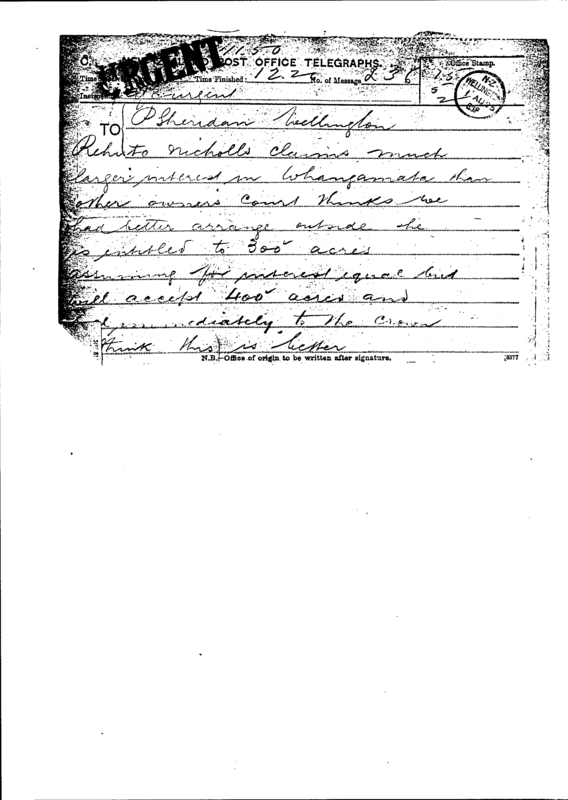 URGENT
11.50
POST OFFICE TELEGRAPHS.
Office Stamp.
Time Finished: 12.2 No. of Message 236
N.Z.
WELLINGTON
Urgent
TO P Sheridan Wellington
Nicholls claims much
larger interest in Whangamata than
other owners Court thinks we
had better arrange outside he
is entitled to 300 acres
assuming for interest equal but
will accept 400 acres and
immediately to the Crown
think this is better
N.B.—Office of origin to be written after signature.